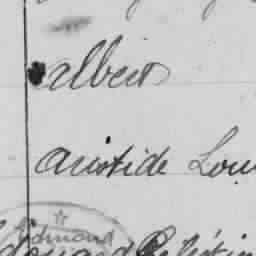 albert
aristide Lou
Edmond
Edouard Célestin